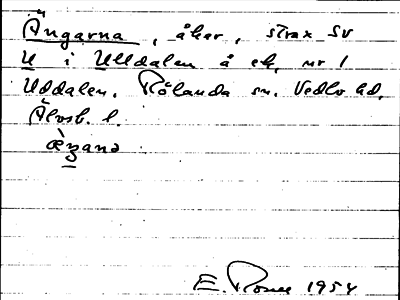 Ängarna, åker, strax SV
U i Ulldalen å ek, nr 1
Uddalen. Rölanda sn. Vedbo hd.
Älvsb. l.
E. 1954